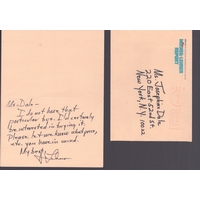 Ms. Dale -
I do not have that
particular bye. I'd certainly
be interested in buying it.
Please let me know what price,
etc. you have in mind.
My best,
Ms. Josephine Dale
220 East 62nd St
New York, N.Y. 10022